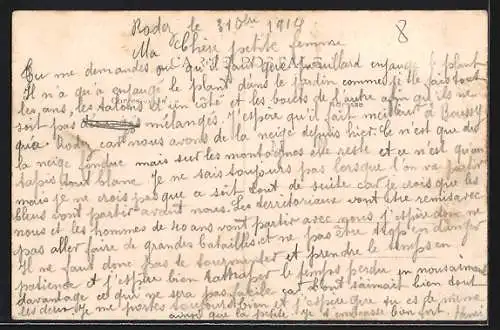 Rodez le 31 Obre 1914
8
Ma Chère petite femme
Tu me demandes où qu'il faut que Rouillard enjauge le plant
Il n'a qu'a enjauge le plant dans le jardin comme je le fais tout
les ans, les talons d'un côté et les bouts de l'autre afin qu'ils ne
soit pas mélangés. J'espère qu'il fait meilleur à Boussy
qu'a Rodez car nous avons de la neige depuis hier. Ce n'est que de
la neige fondue mais sur les montagnes elle reste et ce n'est qu'un
tapis tout blanc. Je ne sais toujours pas lorsque l'on va partir
mais je ne crois pas que ce soit tout de suite car je crois que les
bleus vont partir avant nous. Les territoriaux vont être remis avec
nous et les hommes de 40 ans vont partir avec nous j'espère donc ne
pas aller faire de grandes batailles et ne pas être trop en danger
Il ne faut donc pas te tourmenter et prendre le temps en
patience et j'espère bien rattraper le temps perdu en nous aimant
davantage ce qui ne sera pas facile car l'on s'aimait bien tout
les deux. Je me portes toujours bien et j'espère que tu es de même
ainsi que la petite. Je t'embrasse bien fort Henri